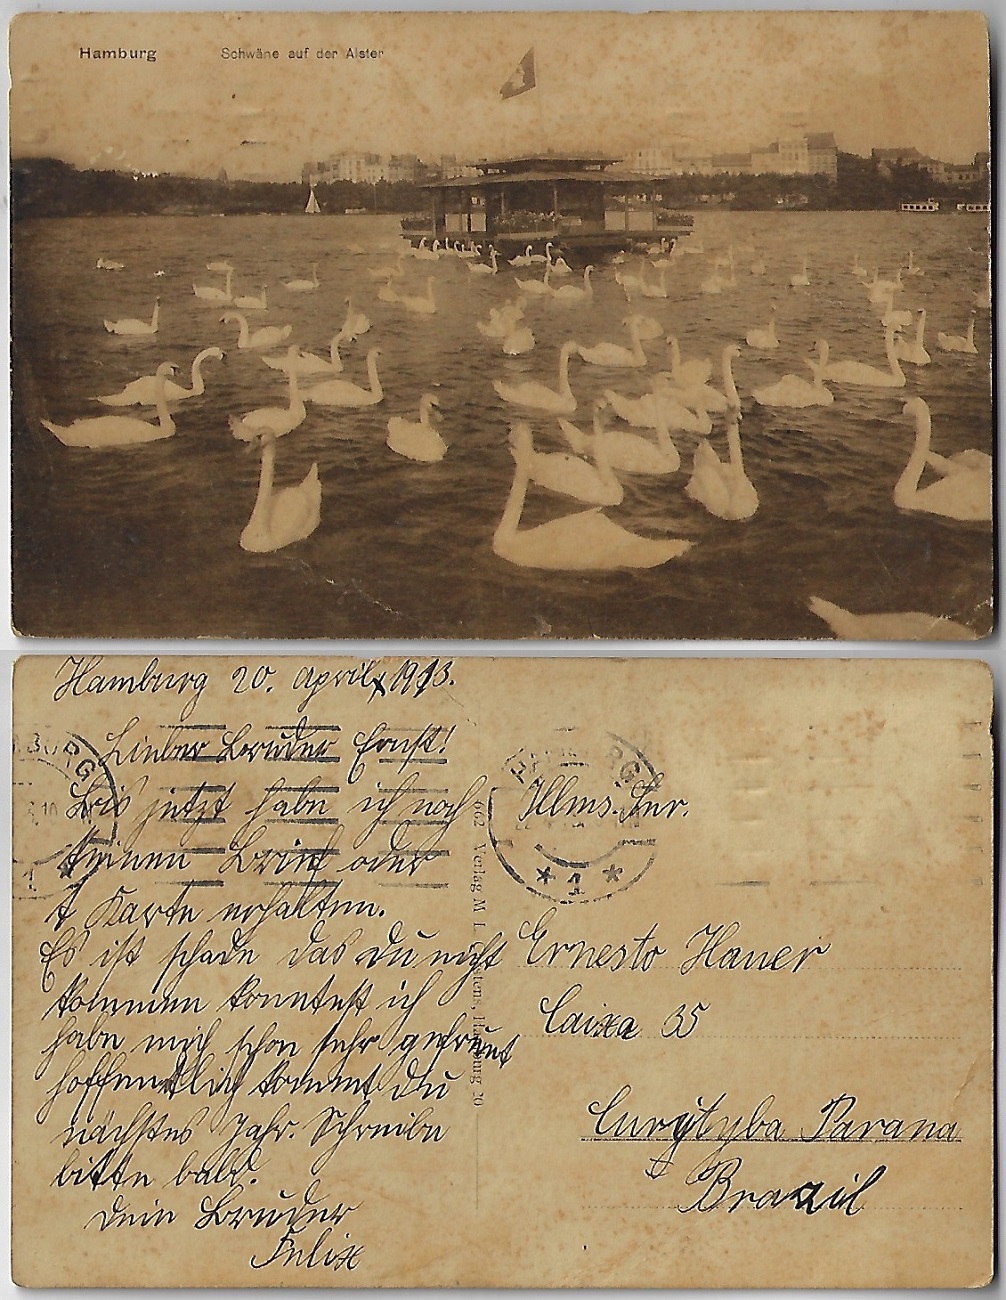 Hamburg Schwäne auf der Alster
Hamburg 20. April 1913.
Lieber Bruder Ernst!
Bis jetzt habe ich noch
keinen Brief oder
Karte erhalten.
Es ist schade das du nicht
kommen konntest ich
habe mich schon sehr gefreut
hoffentlich kommt du
nächstes Jahr. Schreibe
bitte bald.
Dein Bruder
Felix
662 Verlag M
Hamburg 20
HAMBURG
* 1 *
Illms. Snr.
Ernesto Hauer
Caixa 35
Curÿtyba Parana
Brazil